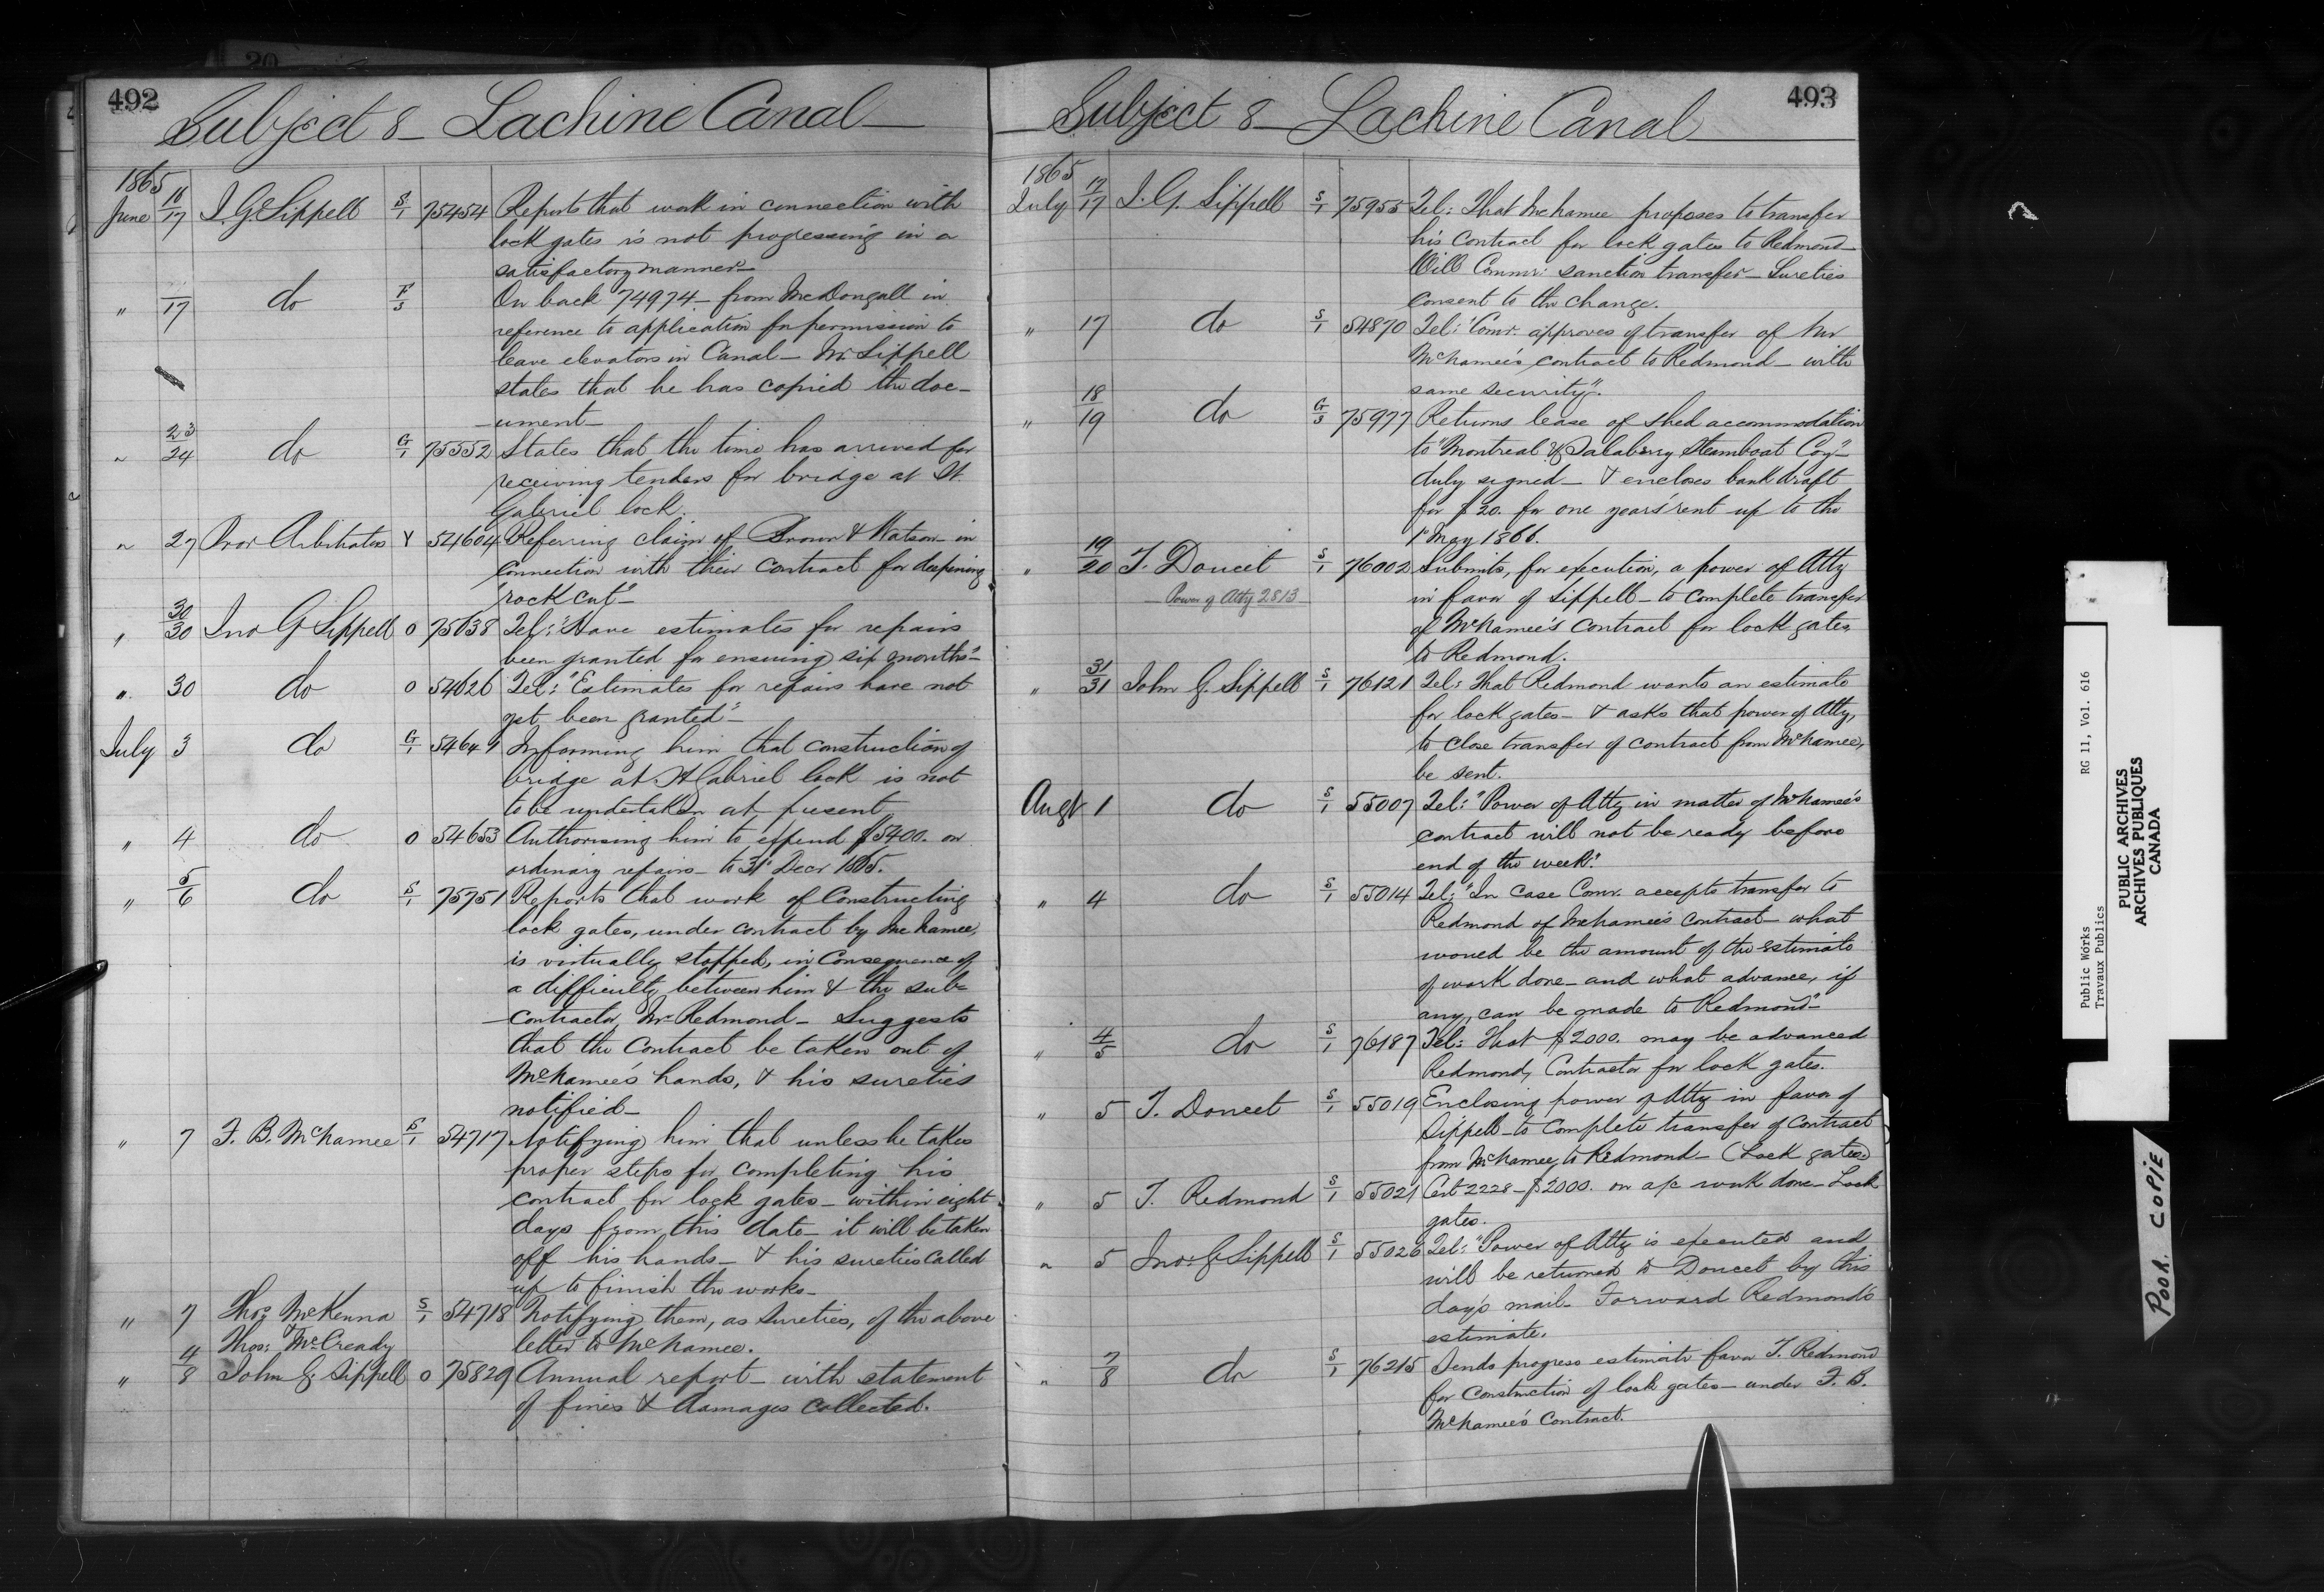 492
Subject 8 - Lachine Canal -
1865
June 16/17 J. G. Sippell S/1 75454 Reports that work in connection with
lock gates is not progressing in a
satisfactory manner -
" 17 do F/3 On back 74974 - from McDongall in
reference to application for permission to
leave elevators in Canal - Mr. Sippell
states that he has copied the doc-
-ument -
" 23/24 do G/1 75552 States that the time has arrived for
receiving tenders for bridge at St.
Gabriel lock.
" 27 Prov Arbitrators Y 54604 Referring claim of Brown & Watson in
connection with their contract for deepining
rock cut" -
" 30/30 Jno G Sippell O 75638 Tel: "Have estimates for repairs
been granted for ensuing six months" -
" 30 do O 54626 Tel: "Estimates for repairs have not
yet been granted" -
July 3 do G/1 54649 Informing him that construction of
bridge at St Gabriel lock is not
to be undertaken at present
" 4 do O 54653 Authorising him to expend $5400. on
ordinary repairs - to 31st Decr 1865.
" 5/6 do S/1 75751 Reports that work of Constructing
lock gates, under contract by McNamee,
is virtually stopped, in Consequence of
a difficulty between him & the sub-
-contractor, Mr Redmond - Suggests
that the Contract be taken out of
McNamee's hands, & his sureties
notified -
" 7 F. B. McNamee S/1 54717 Notifying him that unless he takes
proper steps for completing his
contract for lock gates - within eight
days from this date - it will be taken
off his hands - & his sureties called
up to finish the works -
" 7 Thos McKenna S/1 54718 Notifying them, as Sureties, of the above
& Thos: McCready letter to McNamee.
" 4/8 John G. Sippell O 75829 Annual report - with statement
of fines & damages collected.
493
- Subject 8 - Lachine Canal
1865
July 17/17 J. G. Sippell S/1 75955 Tel: That McNamee proposes to transfer
his contract for lock gates to Redmond -
Will Commr: sanction transfer - Sureties
consent to the change.
" 17 do S/1 54870 Tel: "Comr. approves of transfer of Mr
McNamee's contract to Redmond - with
same security".
" 18/19 do G/3 75977 Returns lease of shed accommodation
to "Montreal & Salaberry Steamboat Coy" -
duly signed - & encloses bank draft
for $20. for one years' rent up to the
1st May 1866.
" 19/20 T. Doucet S/1 76002 Submits, for execution, a power of Atty
Power of Atty 2813
in favor of Sippell - to complete transfer
of McNamee's Contract for lock gates
to Redmond.
" 31/31 John G. Sippell S/1 76121 Tel: That Redmond wants an estimate
for lock gates - & asks that power of Atty,
to close transfer of contract from McNamee,
be sent.
Augt 1 do S/1 55007 Tel: "Power of Atty in matter of McNamee's
contract will not be ready before
end of the week."
" 4 do S/1 55014 Tel: "In case Comr. accepts transfer to
Redmond of McNamee's contract - what
woued be the amount of the estimate
of work done - and what advance, if
any, can be made to Redmond" -
" 4/5 do S/1 76187 Tel: That $2000. may be advanced
Redmond, Contractor for lock gates.
" 5 T. Doucet S/1 55019 Enclosing power of Atty in favor of
Sippell - to complete transfer of Contract
from McNamee to Redmond - (Lock gates)
" 5 T. Redmond S/1 55021 Cert 2228 - $2000. on a/c work done - Lock
gates.
" 5 Jno: G Sippell S/1 55026 Tel: "Power of Atty is executed and
will be returned to Doucet by this
day's mail - Forward Redmond's
estimate.
" 7/8 do S/1 76215 Sends progress estimate favor T. Redmond
for Construction of lock gates - under F. B.
McNamee's Contract.
Public Works RG 11, Vol. 616
Travaux Publics
PUBLIC ARCHIVES
ARCHIVES PUBLIQUES
CANADA
POOR COPIE